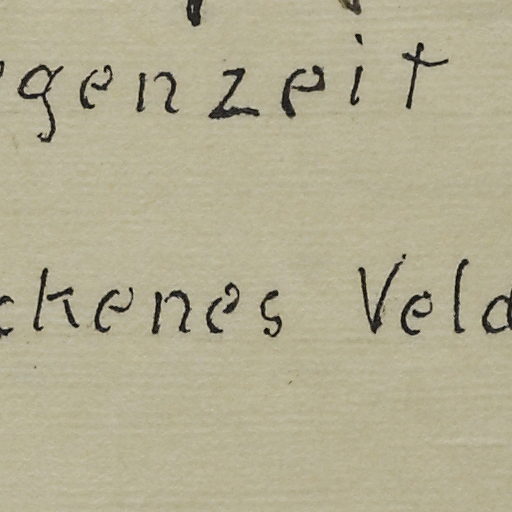 genzeit
ckenes Veld